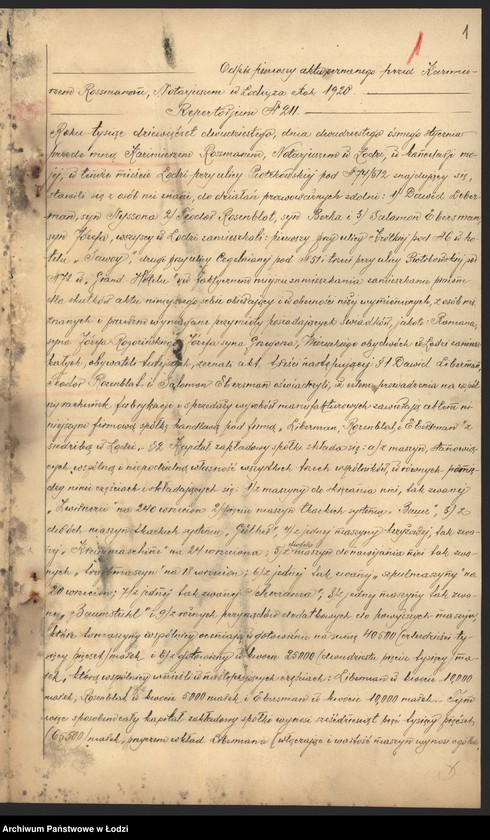 1
1
Odpis pierwszy aktu zeznanego przed Kazimie-
rzem Rossmanem, Notarjuszem w Łodzi, za rok 1920.
Repertorjum № 211.
Roku tysiąc dziewięćset dwudziestego, dnia dwudziestego ósmego stycznia
przede mną Kazimierzem Rossmanem, Notarjuszem w Łodzi, w kancelarji mo-
jej, w tymże mieście Łodzi przy ulicy Piotrkowskiej pod № 71/512 znajdującej się,
stawili się z osób mi znani, do działań prawowiecznych zdolni: 1/ Dawid Liber-
man, syn Nyssona 2/ Teodor Rosenblat, syn Berka i 3/ Salomon Ebersman,
syn Józefa, wszyscy w Łodzi zamieszkali: pierwszy przy ulicy Krótkiej pod №6 w ho-
telu „Savoy” drugi przy ulicy Cegielnianej pod №51 i trzeci przy ulicy Piotrkowskiej pod
№72 w „Grand Hotelu” od faktycznem miejscu zamieszkania zamieszkanie prawne
dla skutków aktu niniejszego sobie obierający i w obecności niżej wymienionych, z osób mi
znanych i prawem wymagane przymioty posiadających świadków, jakoto: Romana,
syna Józefa i Józefa syna Jawora, obydwóch w Łodzi zamiesz-
kałych, obywateli tutejszych, zeznali akt treści następującej: § 1 Dawid Liberman,
Teodor Rosenblat i Salomon Ebersman oświadczyli, iż celem prowadzenia na wspól-
ny rachunek fabrykacji i sprzedaży wyrobów manufakturowych zawierają aktem ni-
niejszym firmową spółkę handlową pod firmą „Liberman, Rosenblat i Ebersman” z
siedzibą w Łodzi. § 2. Kapitał zakładowy spółki składa się: a/ z maszyn, stanowią-
cych, wspólną i niepodzielną własność wszystkich trzech wspólników, w równych pomię-
dzy nimi częściach i składających się: 1/ z maszyny do skręcania nici, tak zwanej
„Zwirnerei” na 240 wrzecion 2/ pięciu maszyn tkackich systemu „Bauer”, 3/ z
dwóch maszyn tkackich systemu , 4/ z jednej maszyny krzyżowej, tak zwa-
nej „Kreuzmaschine” na 24 wrzeciona; 5/ z dwóch maszyn do nawijania nici tak zwa-
nych „trajbmaszyn” na 18 wrzecion; 6/ z jednej tak zwanej „szpulmaszyny” na
20 wrzecion; 7/ z jednej tak zwanej „scherrama”, 8/ z jednej maszyny tak zwa-
nej „Baumstuhl” i 9/ z różnych przyrządów dodatkowych do powyższych maszyn,
które to maszyny wspólnicy oceniają w gotowiźnie na sumę 40500 /czterdzieści ty-
sięcy pięćset/ marek i b/ z gotowizny w kwocie 25000 /dwadzieścia pięć tysięcy/ ma-
rek, którą wspólnicy wnieśli w następujących częściach: Liberman w kwocie 10,000
marek, Rosenblat w kwocie 5000 marek i Ebersman w kwocie 10,000 marek. Tym
więc sposobem cały kapitał zakładowy spółki wynosi sześćdziesiąt pięć tysięcy pięćset
(65500) marek, przyczem wkład Libermana (włączając i wartość maszyn wynosi ogółem
Archiwum Państwowe w Łodzi